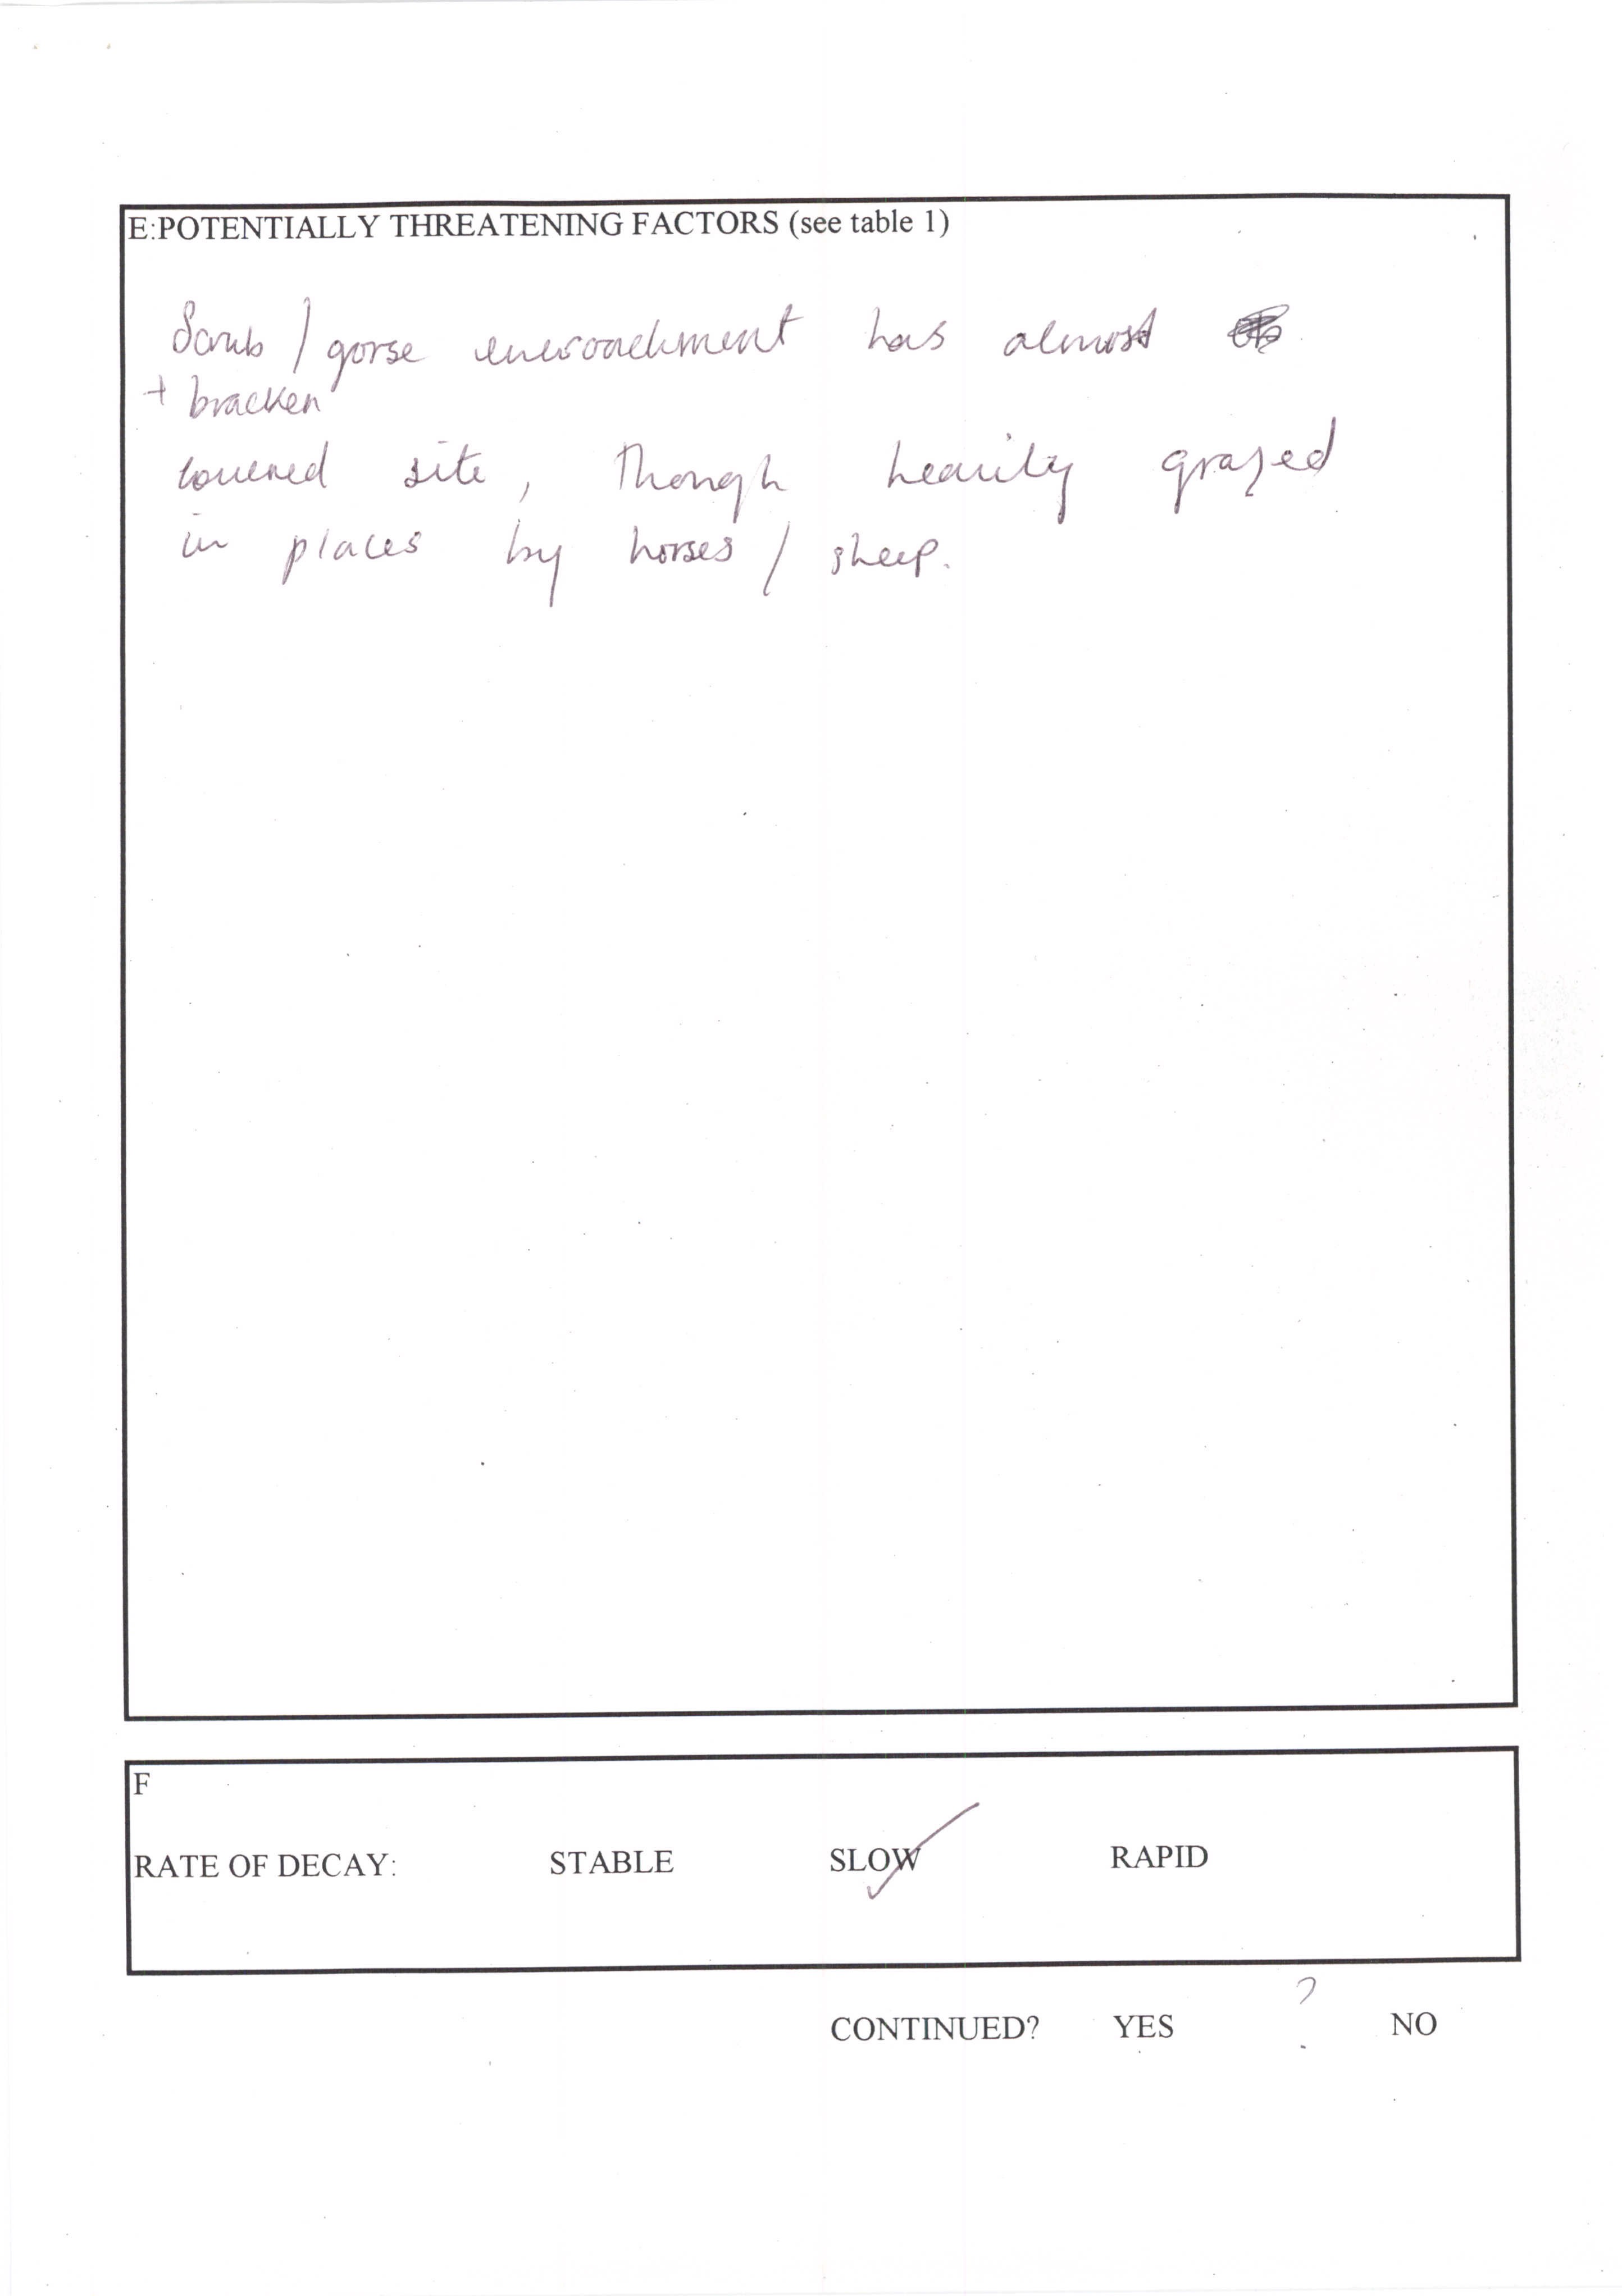 E:POTENTIALLY THREATENING FACTORS (see table 1)
Scrub / gorse encroachment has almost
+ bracken
covered site, though heavily grazed
in places by horses / sheep.
F
RATE OF DECAY: STABLE SLOW RAPID
?
CONTINUED? YES NO